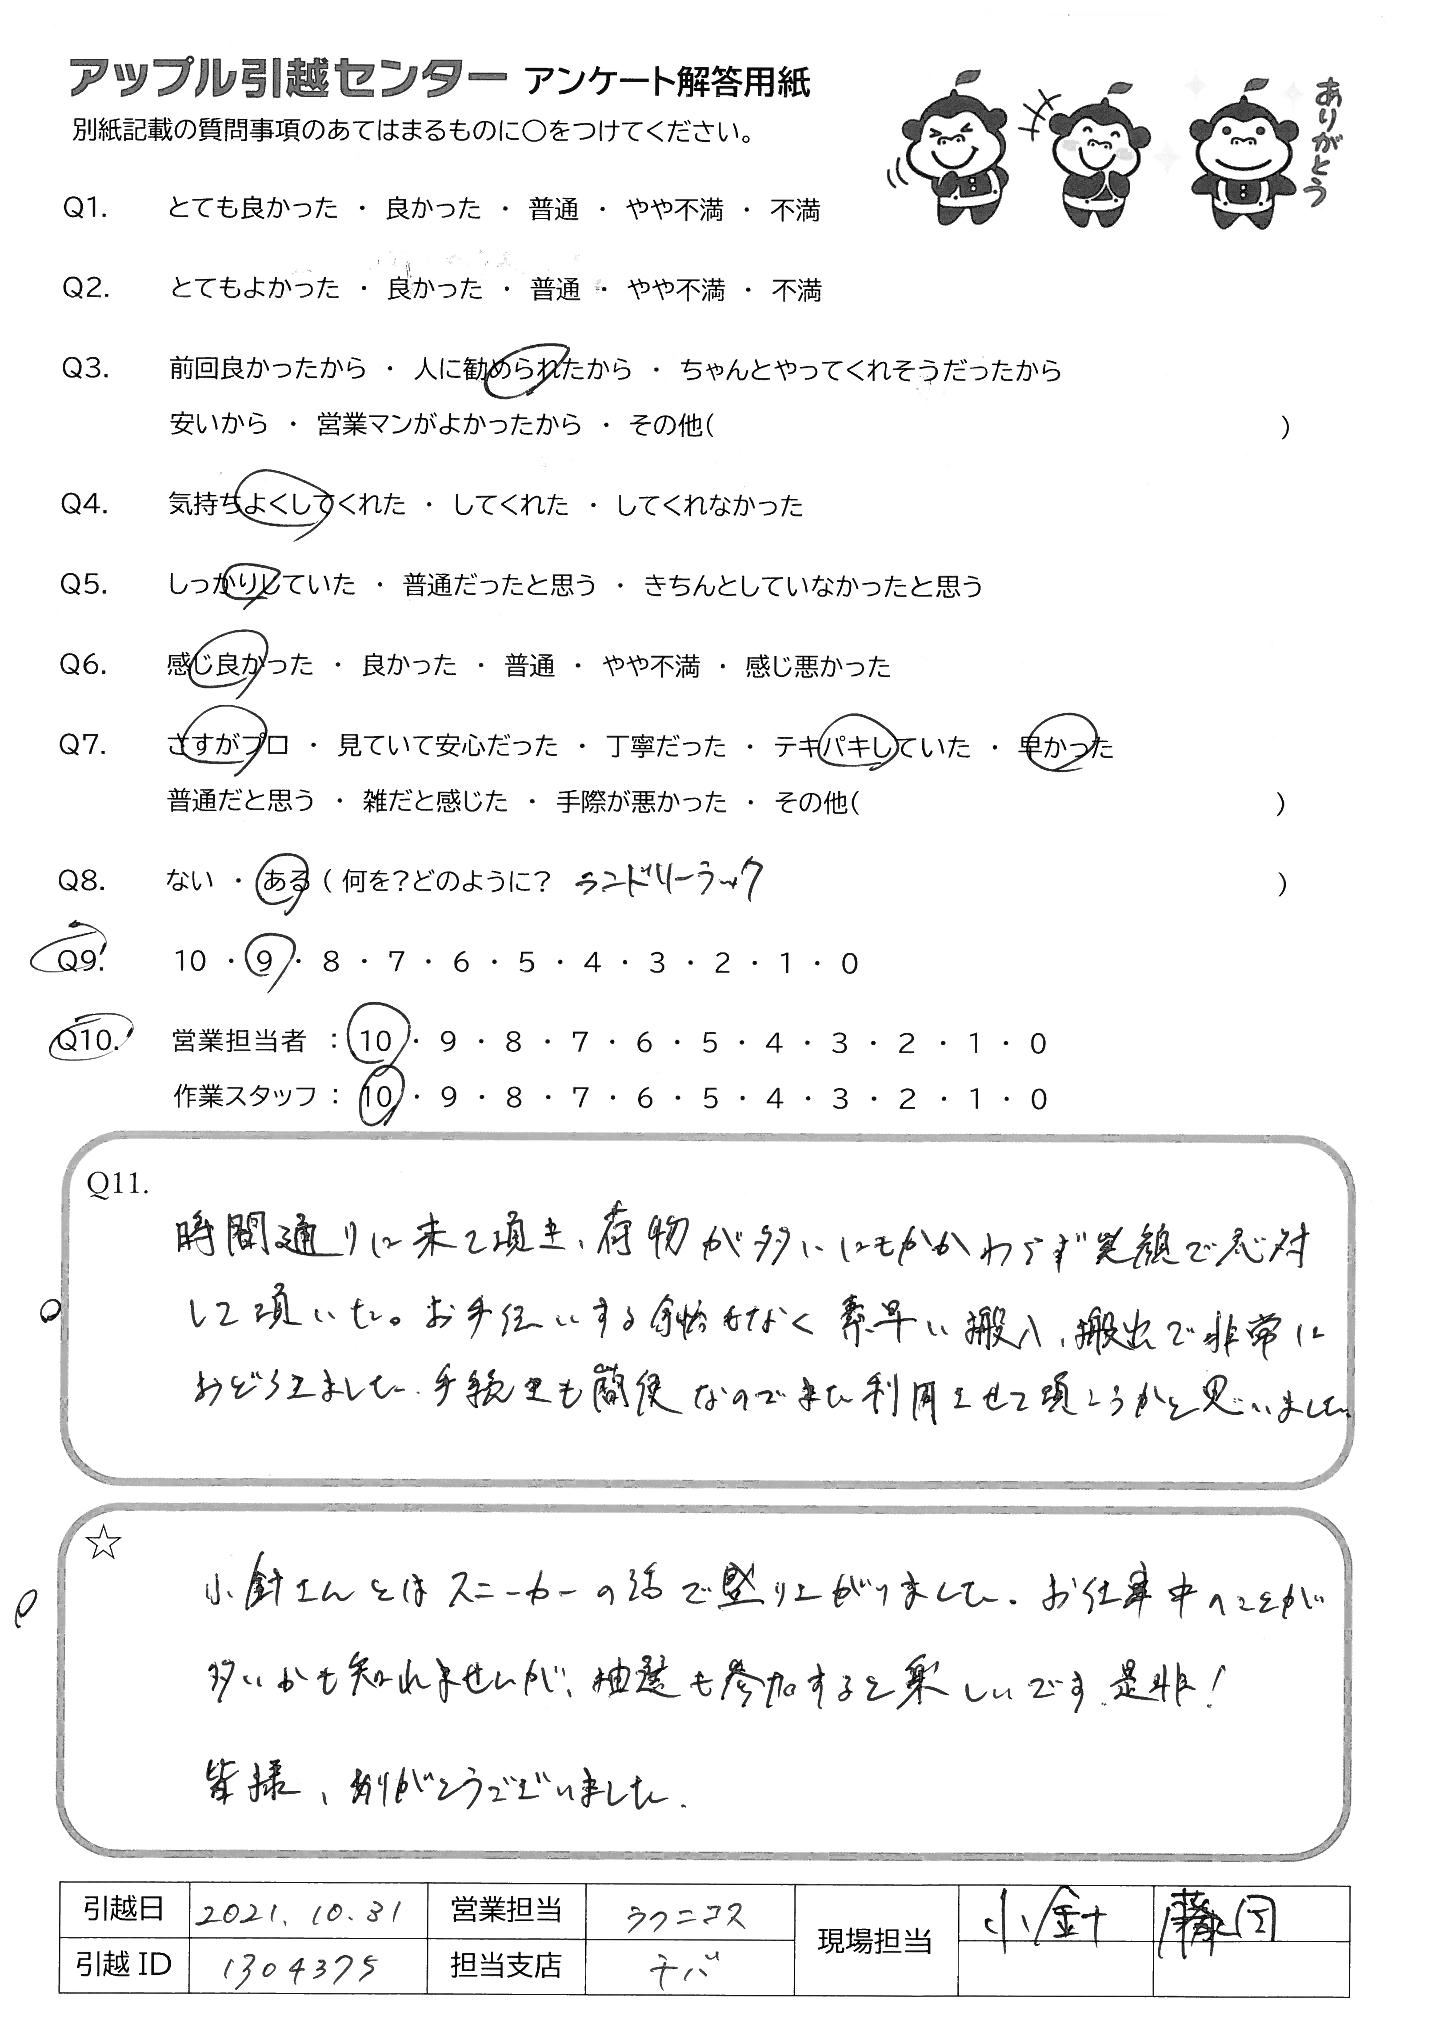 アップル引越センター アンケート解答用紙
ありがとう
別紙記載の質問事項のあてはまるものに○をつけてください。
Q1. とても良かった ・ 良かった ・ 普通 ・ やや不満 ・ 不満
Q2. とてもよかった ・ 良かった ・ 普通 ・ やや不満 ・ 不満
Q3. 前回良かったから ・ 人に勧められたから ・ ちゃんとやってくれそうだったから
安いから ・ 営業マンがよかったから ・ その他( )
Q4. 気持ちよくしてくれた ・ してくれた ・ してくれなかった
Q5. しっかりしていた ・ 普通だったと思う ・ きちんとしていなかったと思う
Q6. 感じ良かった ・ 良かった ・ 普通 ・ やや不満 ・ 感じ悪かった
Q7. さすがプロ ・ 見ていて安心だった ・ 丁寧だった ・ テキパキしていた ・ 早かった
普通だと思う ・ 雑だと感じた ・ 手際が悪かった ・ その他( )
Q8. ない ・ ある ( 何を?どのように? ランドリーラック )
Q9. 10 ・ 9 ・ 8 ・ 7 ・ 6 ・ 5 ・ 4 ・ 3 ・ 2 ・ 1 ・ 0
Q10. 営業担当者 : 10 ・ 9 ・ 8 ・ 7 ・ 6 ・ 5 ・ 4 ・ 3 ・ 2 ・ 1 ・ 0
作業スタッフ : 10 ・ 9 ・ 8 ・ 7 ・ 6 ・ 5 ・ 4 ・ 3 ・ 2 ・ 1 ・ 0
Q11.
時間通りに来て頂き、荷物が多いにもかかわらず笑顔で応対
して頂いた。お手伝いする余裕もなく素早い搬入、搬出で非常に
おどろきました。手続きも簡便なのでまた利用させて頂こうかと思いました。
☆
小針さんとはスニーカーの話で盛り上がりました。お仕事中のことが
多いかも知れませんが、抽選も参加すると楽しいです。是非!
皆様、ありがとうございました。
引越日 2021.10.31 営業担当 ラクニコス 現場担当 小針
引越ID 1304375 担当支店 チバ